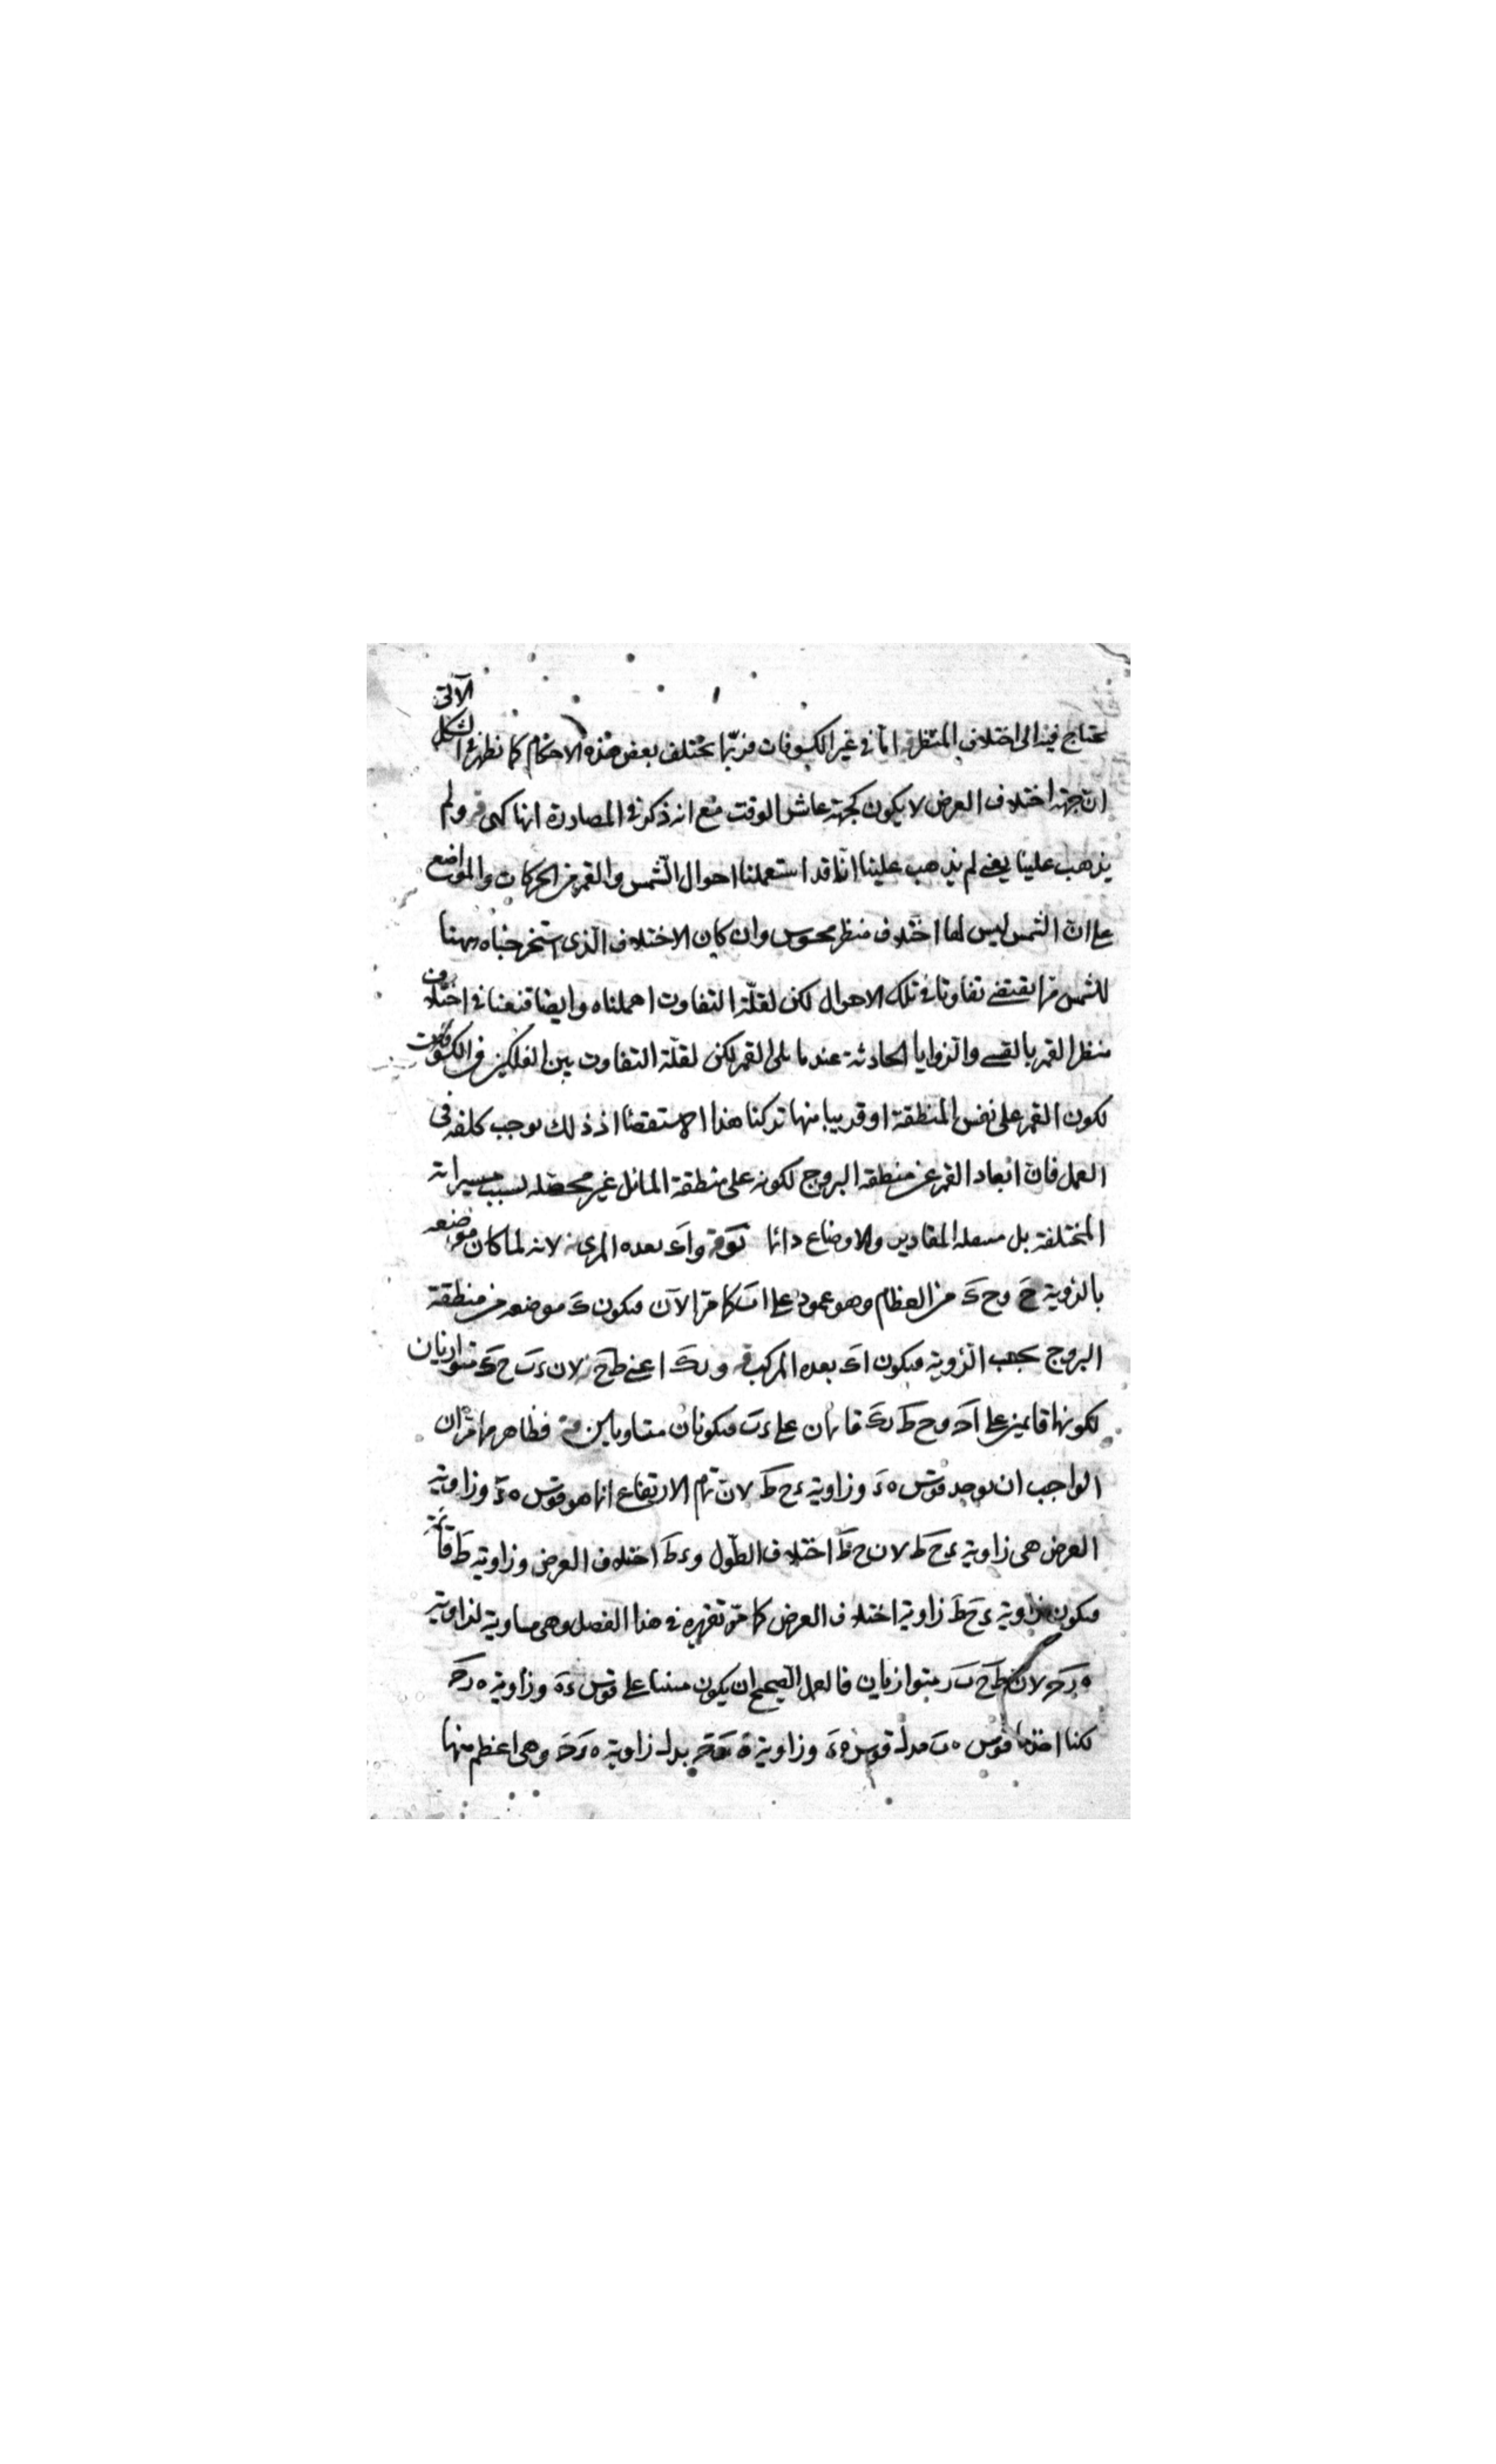 الآتى
يحتاج فيه الى اختلاف المنظر امّا فى غير الكسوفات فربّما يختلف بعض هذه الاحكام كما نظهر فى الشكل
ان جهة اختلاف العرض لا يكون كجهة عاشر الوقت مع انه ذكر فى المصادرة انها كهى قه ولم
يذهب علينا يعنى لم يذهب علينا انّا قد استعملنا احوال الشمس والقمر من الحركات والمواضع
على ان الشمس ليس لها اختلاف منظر محسوس وان كان الاختلاف الّذى استخرجناه ههنا
للشمس ممّا يقتضى تفاوتا فى تلك الاحوال لكن لقلّة التفاوت اهملناه وايضا قنعنا فى اختلاف
منظر القمر بالقسى والزوايا الحادثة عند ما يلى القمر لكن لقلّة التفاوت بين الفلكين فى الكسوفات
لكون القمر على نفس المنطقة او قريبا منها تركنا هذا الاستقصا اذ ذلك يوجب كلفة فى
العمل فان ابعاد القمر عن منطقة البروج لكونه على منطقة المائل غير محصّلة بسبب مسيراته
المختلفة بل المقادير والاوضاع دائما قوله واك بعده المرئى لانه لما كان موضعه
بالرؤية ح وح ك من العظام وهو عمود على اب كما مرّ الآن فيكون ك موضعه من منطقة
البروج بحسب الرؤية فيكون اك بعده المركب قه وبك اعنى طح لان ء ب ح ك متوازيان
لكونهما قائمين على اح وح ط بك قائمان على ء ب فيكونان متساويين قه فظاهر ممّا مرّ ان
الواجب ان يوجد قوس ه ء وزاوية ء ح ط لان تمام الارتفاع انما هو قوس ه ء وزاوية
العرض هى زاوية ء ح ط لان ح ط اختلاف الطّول وء ط اختلاف العرض وزاوية ط قائمة
فيكون زاوية ء ح ط زاوية اختلاف العرض كما مرّ تقريره فى هذا الفصل وهى مساوية لزاوية
ه ر ح لان ط ح ب ر متوازيان فالعمل الصحيح ان يكون مبنيا على قوس ء ه وزاوية ه ر ح
لكنا اخذنا قوس ه ب بدل قوس ه ء وزاوية بدل زاوية ه ر ح وهى اعظم منها